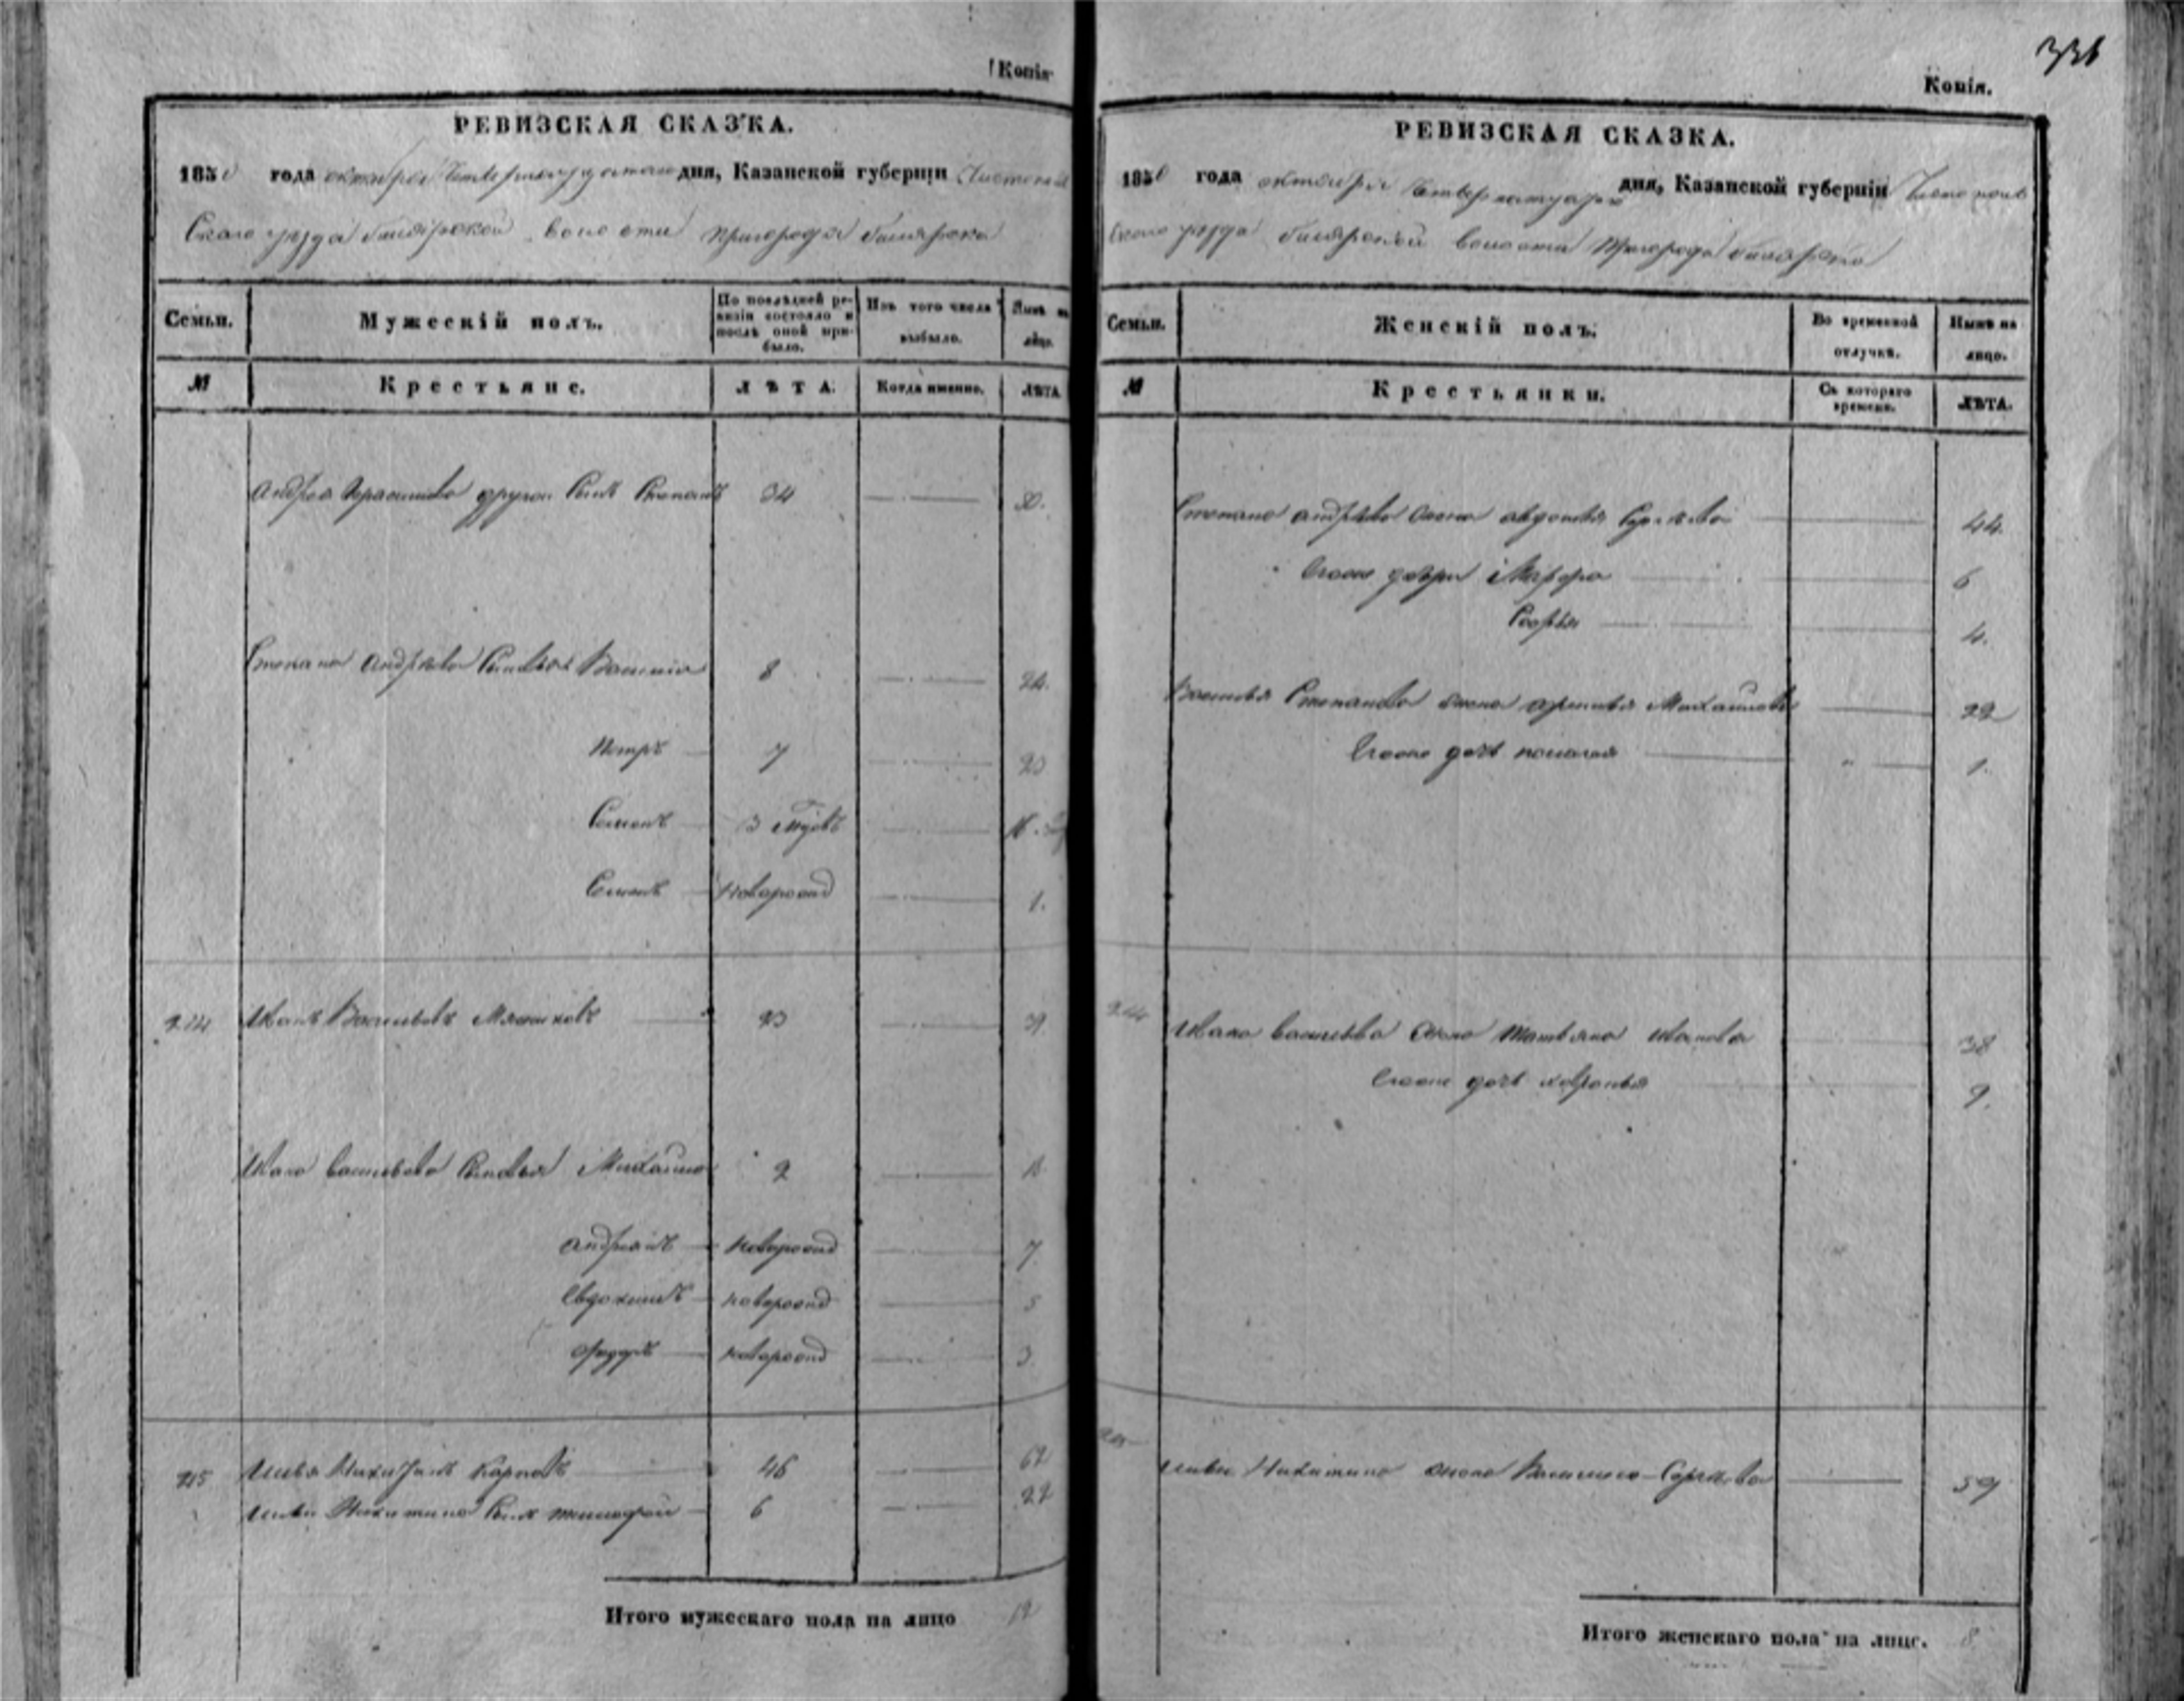 Копія
РЕВИЗСКАЯ СКАЗКА.
1850 года октября дня, Казанской губерніи Чистополь
скаго уѣзда билярской волости пригорода билярска
Семьи.
Мужескій полъ.
По послѣдней ревизіи состояло и послѣ оной прибыло.
Изъ того числа выбыло.
Нынѣ на лицо.
№
Крестьяне.
ЛѢТА.
Когда именно.
ЛѢТА
Андрея другой Сынъ Степанъ 34 50.
Степана Андрѣева Сыновья Василій 8 24.
Петръ 7 23
Семенъ 3
Семенъ новорожд 1.
214 Иванъ Васильевъ 23 39.
Ивана Васильева Сыновья Михаила 2 18
Андреянъ новорожд 7
Евдокимъ новорожд 5
Федоръ новорожд 3
215 Илья Никитинъ Карповъ 46 62
Ильи Никитина Сынъ Тимофей 6 22
Итого мужескаго пола на лицо 12
336
Копія.
РЕВИЗСКАЯ СКАЗКА.
1850 года октября дня, Казанской губерніи Чистополь
скаго уѣзда билярской волости пригорода билярска
Семьи.
Женскій полъ.
Во временной отлучкѣ.
Нынѣ на лицо.
№
Крестьянки.
Съ котораго времени.
ЛѢТА.
Степана Андрѣева жена Авдотья Сергѣева 44.
Егоже дочри Марфа 6
Софья 4.
Василья Степанова жена Михайлова 22
Егоже дочь пелагея 1.
214 Ивана Васильева жена Татьяна Иванова 38
Егоже дочь хавронья 9.
215 Ильи Никитина жена Василиса Сергѣева 59
Итого женскаго пола на лице. 8